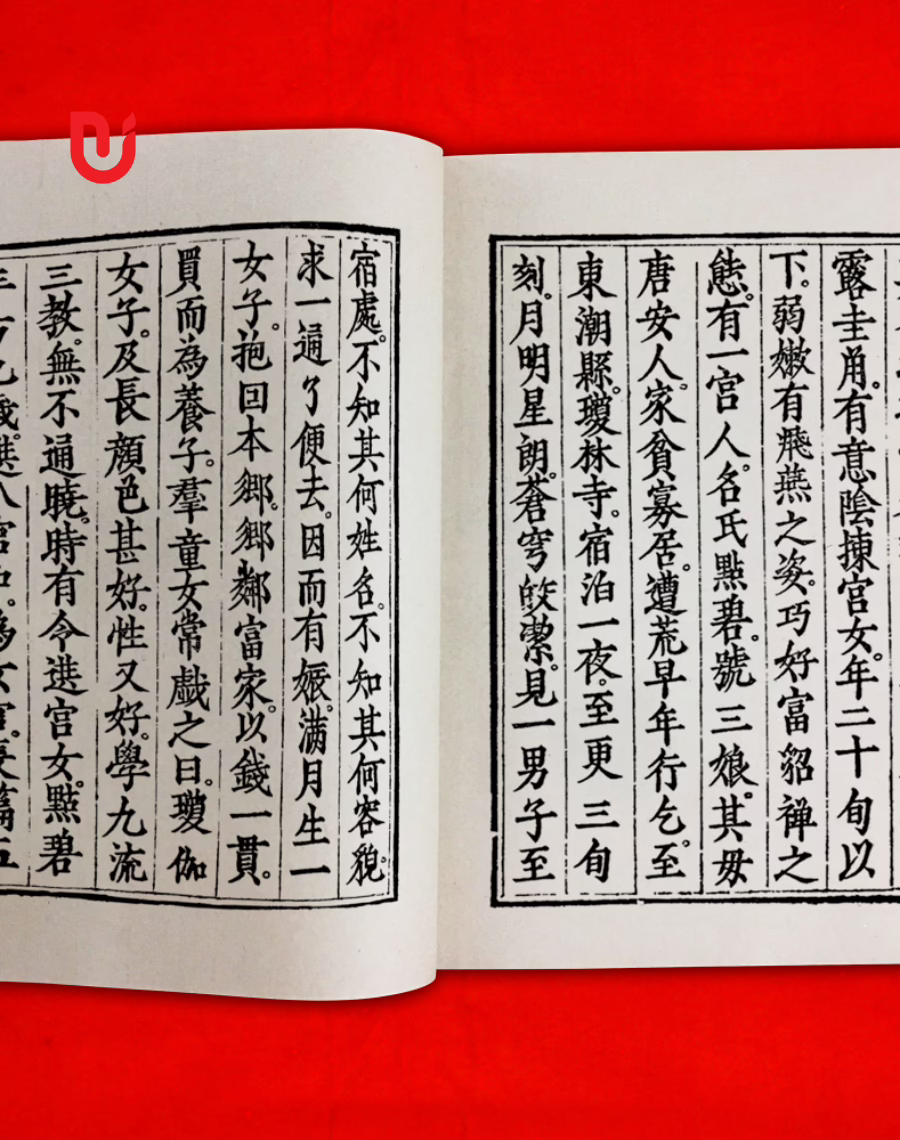 露圭角。有意陰揀宫女。年二十旬以
下。弱嫩有飛燕之姿。巧好富貂禅之
態。有一宫人。名氏點碧。號三娘。其毋
唐安人。家貧寡居。遭荒早年行乞。至
東潮縣。瓊林寺。宿泊一夜。至更三旬
刻。月明星朗。蒼穹皎潔。見一男子至
宿處。不知其何姓名。不知其何容貌。
求一通了便去。因而有娠。满月生一
女子。抱回本郷。郷鄰富家。以錢一貫。
買而為養子。羣童女常戲之曰。瓊伽
女子。及長顔色甚好。性又好。學九流
三教。無不通曉。時有令選宫女。點碧